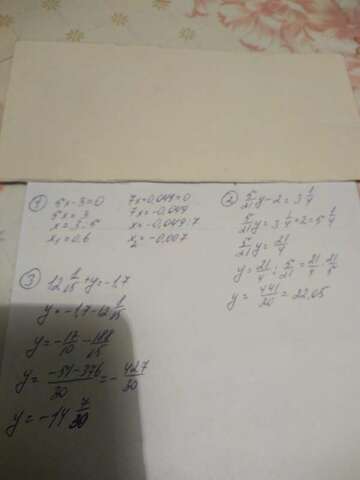 ① 5x-3=0
5x=3
x=3:5
x₁=0,6
7x+0,049=0
7x=-0,049
x=-0,049:7
x₂=-0,007
② 5/21 y-2=3 1/4
5/21 y=3 1/4+2=5 1/4
5/21 y=21/4
y=21/4:5/21=21/4·21/5
y=441/20=22,05
③ 12 8/15+y=-1,7
y=-1,7-12 8/15
y=-17/10-188/15
y=-51-376/30=-427/30
y=-14 7/30